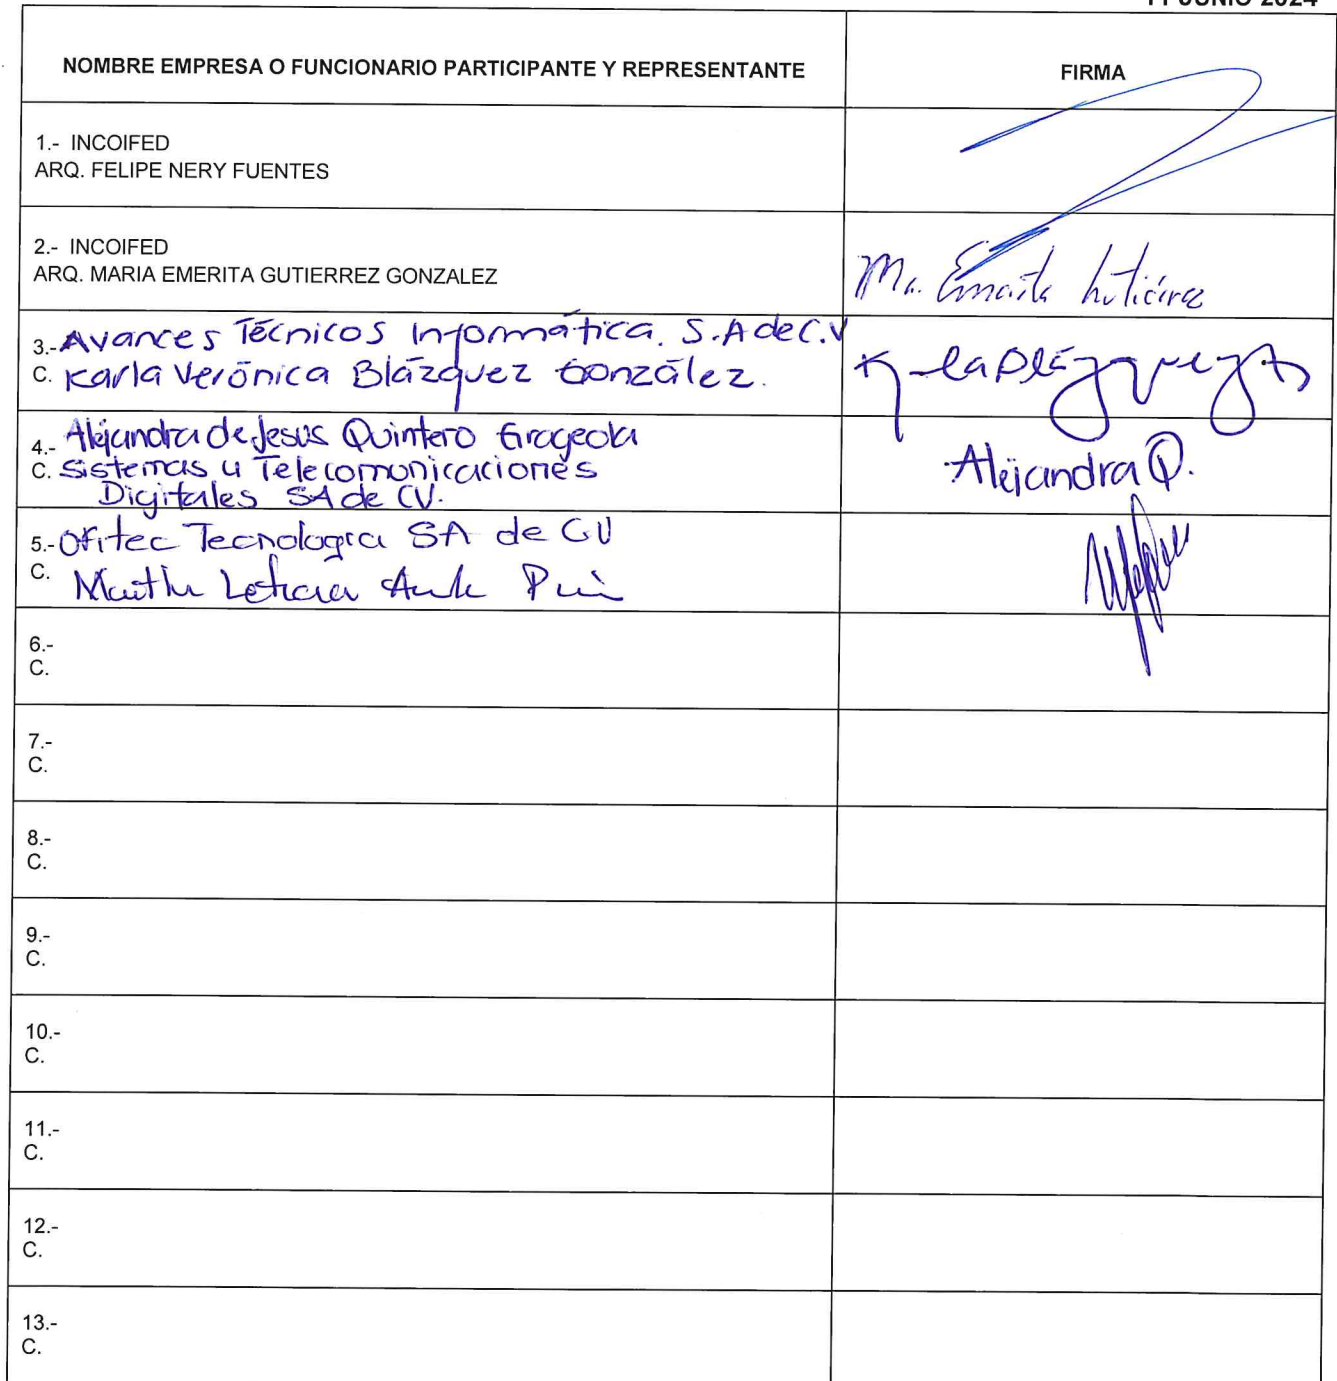 11 JUNIO 2024
NOMBRE EMPRESA O FUNCIONARIO PARTICIPANTE Y REPRESENTANTE
FIRMA
1.- INCOIFED
ARQ. FELIPE NERY FUENTES
2.- INCOIFED
ARQ. MARIA EMERITA GUTIERREZ GONZALEZ
Ma. Emerita Gutiérrez
3.- Avances Técnicos Informática. S.A de C.V
C. Karla Verónica Blázquez González.
4.- Alejandra de Jesús Quintero
C. Sistemas y Telecomunicaciones
Digitales SA de CV.
Alejandra Q.
5.- Ofitec Tecnologia SA de CV
C.
6.-
C.
7.-
C.
8.-
C.
9.-
C.
10.-
C.
11.-
C.
12.-
C.
13.-
C.